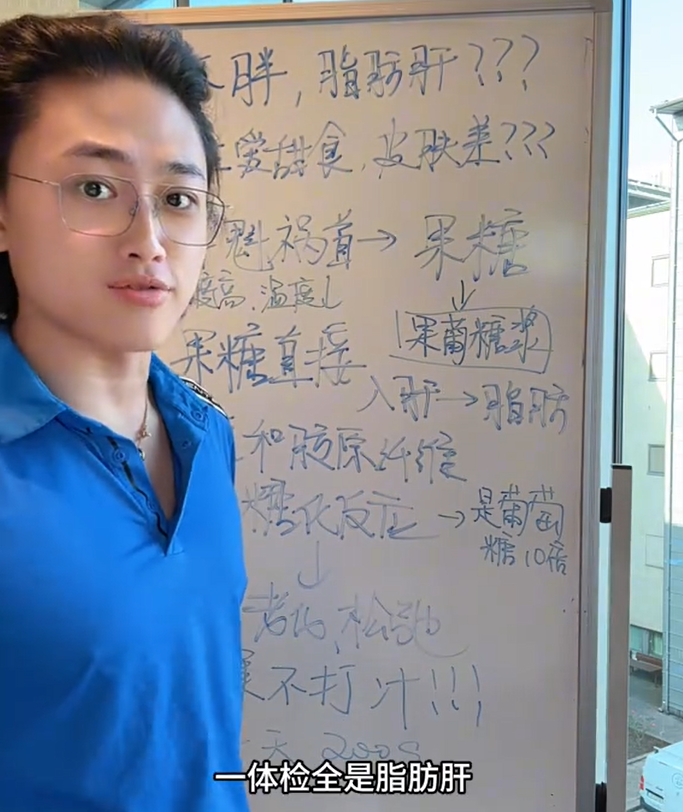 胖，脂肪肝???
爱甜食，皮肤差???
魁祸首→果糖
度高，温度↓
↓
果葡糖浆
果糖直接
入肝→脂肪
和胶原纤维
糖化反应→是葡萄
糖10倍
↓
老化、松弛
不打汁!!!
天 200g
一体检全是脂肪肝